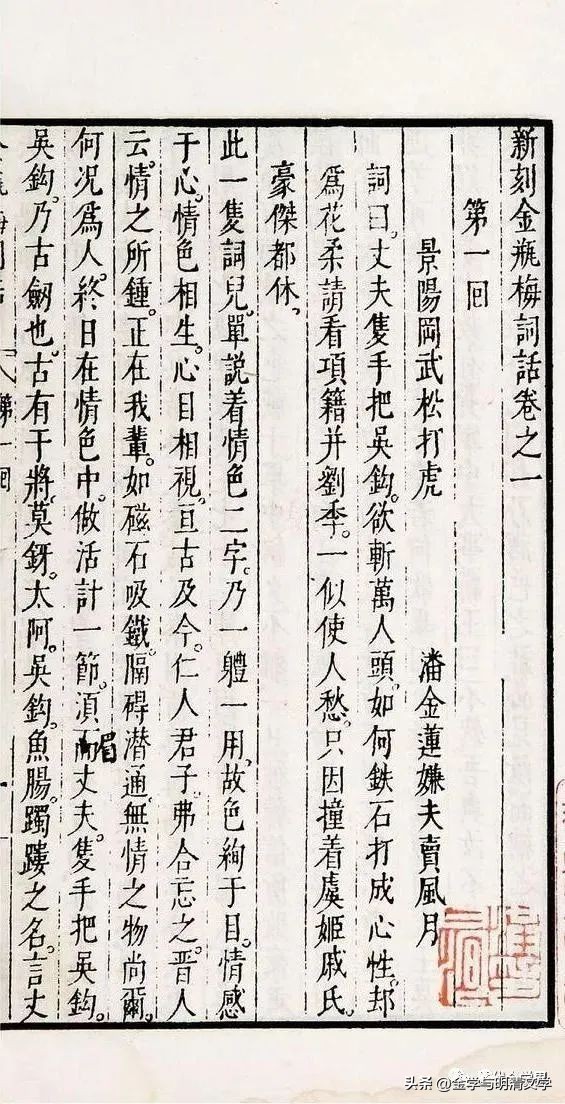 新刻金瓶梅詞話卷之一
第一回
景陽岡武松打虎 潘金蓮嫌夫賣風月
詞曰。丈夫隻手把吳鈎。欲斬萬人頭。如何鉄石打成心性。却
爲花柔請看項籍并劉季。一似使人愁。只因撞着虞姬戚氏。
豪傑都休。
此一隻詞兒。單説着情色二字。乃一體一用。故色絢于目。情感
于心。情色相生。心目相視。亘古及今。仁人君子。弗合忘之。晋人
云。情之所鍾。正在我輩。如磁石吸鐵。隔碍潜通。無情之物尚爾。
何况爲人。終日在情色中。做活計一節。須眉丈夫。隻手把吳鈎。
吳鈎。乃古劒也。古有干將。莫釾。太阿。吳鈎。魚腸。蠋䠠之名。言丈
第一回
头条 @金学与明清文学